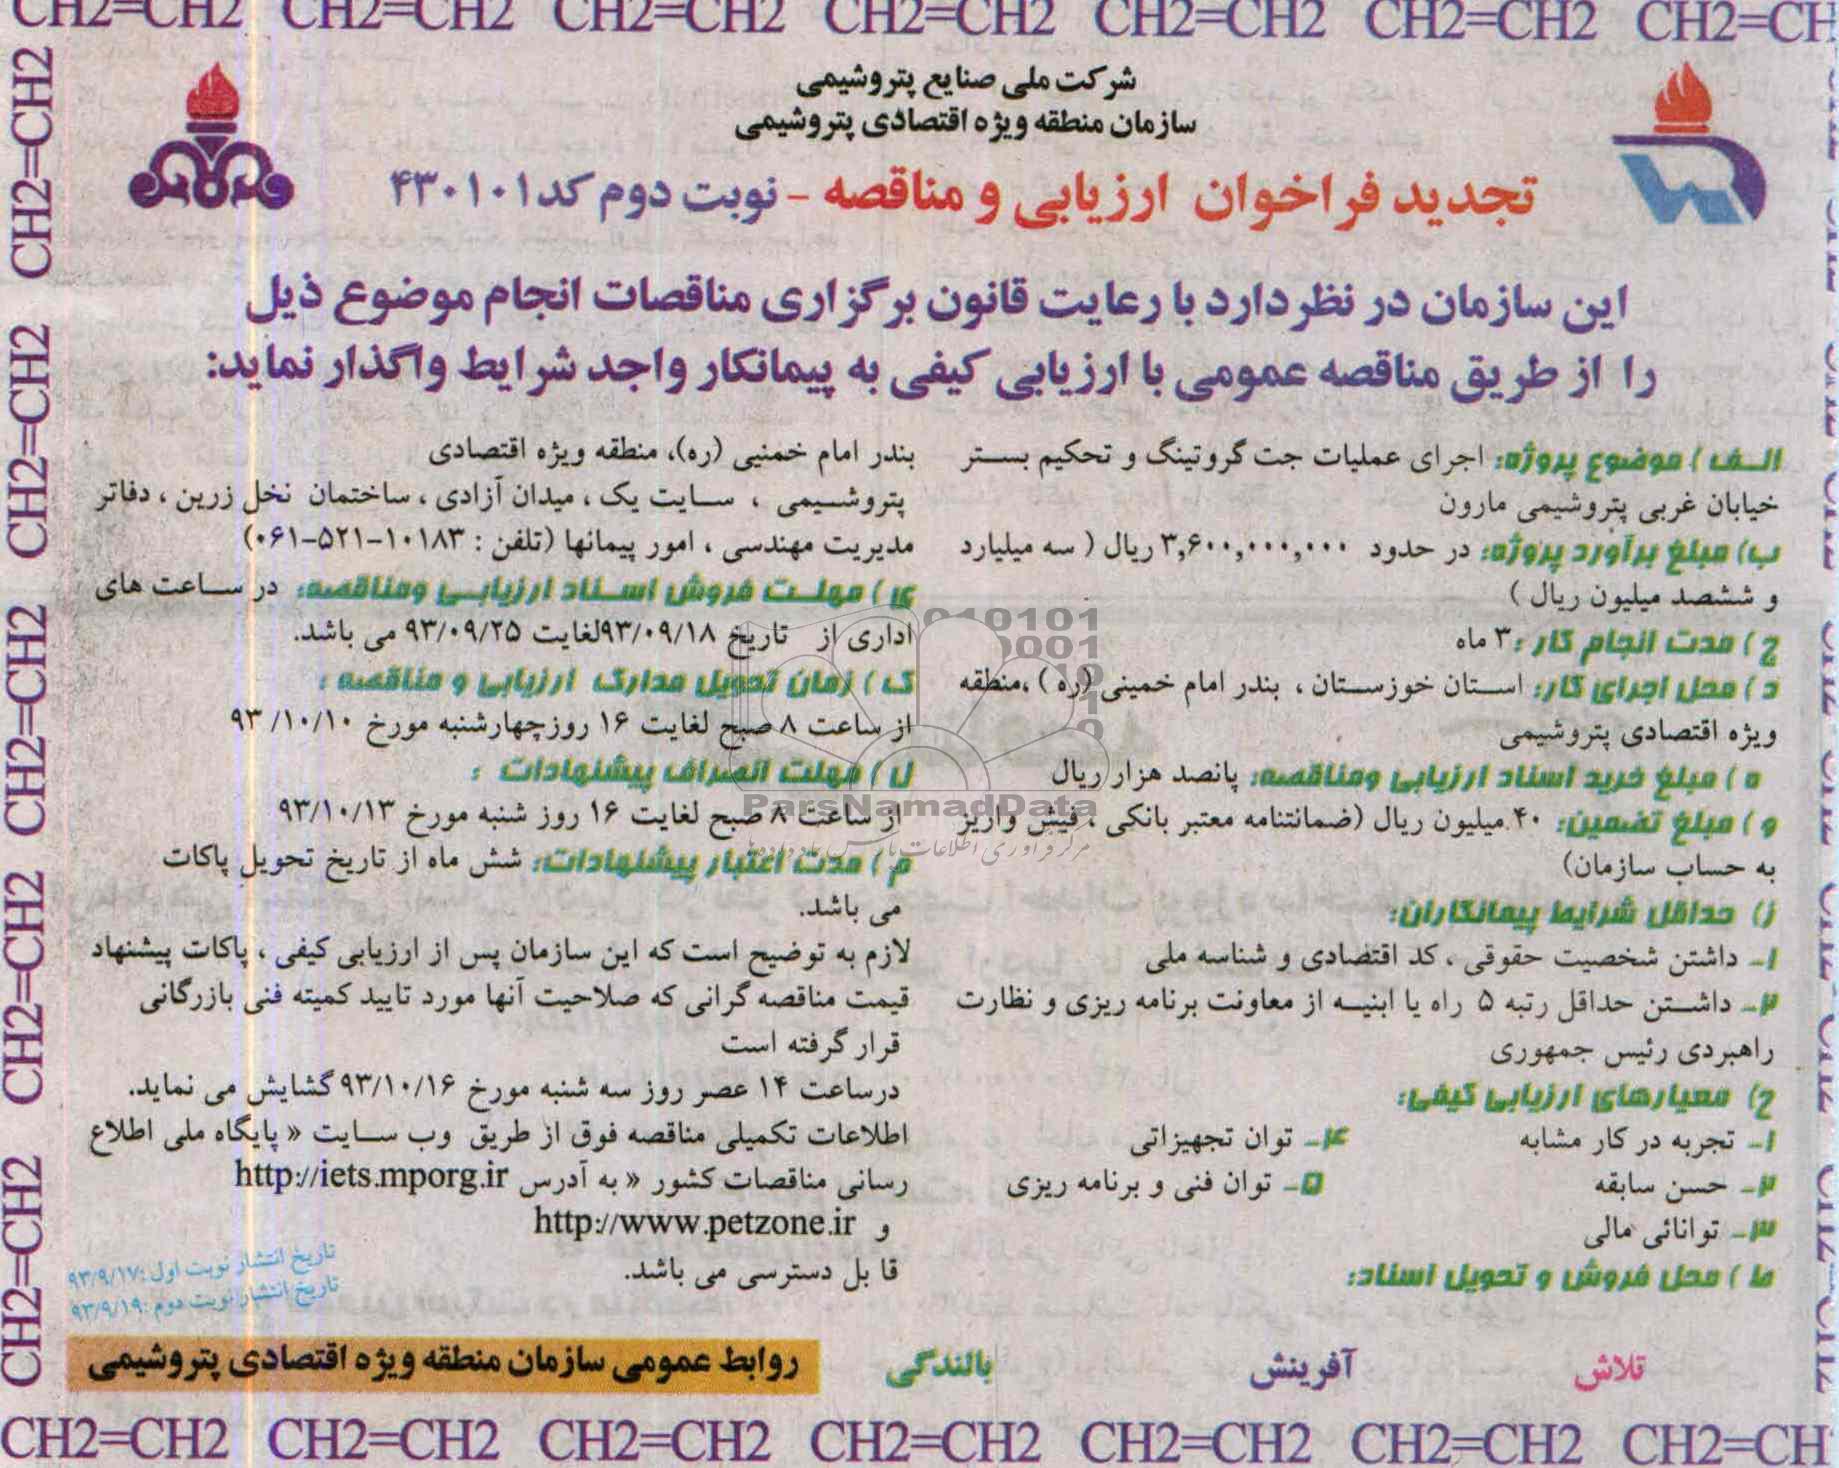 CH2=CH2 CH2=CH2 CH2=CH2 CH2=CH2 CH2=CH2 CH2=CH2 CH2=CH
شرکت ملی صنایع پتروشیمی
سازمان منطقه ویژه اقتصادی پتروشیمی
تجدید فراخوان ارزیابی و مناقصه - نوبت دوم کد ۴۳۰۱۰۱
این سازمان در نظر دارد با رعایت قانون برگزاری مناقصات انجام موضوع ذیل
را از طریق مناقصه عمومی با ارزیابی کیفی به پیمانکار واجد شرایط واگذار نماید:
الف ) موضوع پروژه: اجرای عملیات جت گروتینگ و تحکیم بستر
خیابان غربی پتروشیمی مارون
ب) مبلغ برآورد پروژه: در حدود ۳,۶۰۰,۰۰۰,۰۰۰ ریال ( سه میلیارد
و ششصد میلیون ریال )
ج ) مدت انجام کار : ۳ ماه
د ) محل اجرای کار: استان خوزستان ، بندر امام خمینی (ره ) ،منطقه
ویژه اقتصادی پتروشیمی
ه ) مبلغ خرید اسناد ارزیابی ومناقصه: پانصد هزار ریال
و ) مبلغ تضمین: ۴۰ میلیون ریال (ضمانتنامه معتبر بانکی ، فیش واریز
به حساب سازمان)
ز) حداقل شرایط پیمانکاران:
۱- داشتن شخصیت حقوقی ، کد اقتصادی و شناسه ملی
۲- داشتن حداقل رتبه ۵ راه یا ابنیه از معاونت برنامه ریزی و نظارت
راهبردی رئیس جمهوری
ح) معیارهای ارزیابی کیفی:
۱- تجربه در کار مشابه ۴- توان تجهیزاتی
۲- حسن سابقه ۵- توان فنی و برنامه ریزی
۳- توانائی مالی
ط ) محل فروش و تحویل اسناد:
بندر امام خمنیی (ره)، منطقه ویژه اقتصادی
پتروشیمی ، سایت یک ، میدان آزادی ، ساختمان نخل زرین ، دفاتر
مدیریت مهندسی ، امور پیمانها (تلفن : ۱۰۱۸۳-۵۲۱-۰۶۱)
ی ) مهلت فروش اسناد ارزیابی ومناقصه: در ساعت های
اداری از تاریخ ۹۳/۰۹/۱۸لغایت ۹۳/۰۹/۲۵ می باشد.
ک ) زمان تحویل مدارک ارزیابی و مناقصه :
از ساعت ۸ صبح لغایت ۱۶ روزچهارشنبه مورخ ۹۳/۱۰/۱۰
ل ) مهلت انصراف پیشنهادات :
از ساعت ۸ صبح لغایت ۱۶ روز شنبه مورخ ۹۳/۱۰/۱۳
م ) مدت اعتبار پیشنهادات: شش ماه از تاریخ تحویل پاکات
می باشد.
لازم به توضیح است که این سازمان پس از ارزیابی کیفی ، پاکات پیشنهاد
قیمت مناقصه گرانی که صلاحیت آنها مورد تایید کمیته فنی بازرگانی
قرار گرفته است
درساعت ۱۴ عصر روز سه شنبه مورخ ۹۳/۱۰/۱۶ گشایش می نماید.
اطلاعات تکمیلی مناقصه فوق از طریق وب سایت « پایگاه ملی اطلاع
رسانی مناقصات کشور « به آدرس http://iets.mporg.ir
و http://www.petzone.ir
قا بل دسترسی می باشد.
تاریخ انتشار نوبت اول :۹۳/۹/۱۷
تاریخ انتشار نوبت دوم :۹۳/۹/۱۹
تلاش آفرینش بالندگی
روابط عمومی سازمان منطقه ویژه اقتصادی پتروشیمی
ParsNamadData
مرکز فرآوری اطلاعات پارس نماد داده ها
CH2=CH2 CH2=CH2 CH2=CH2 CH2=CH2 CH2=CH2
CH2=CH2 CH2=CH2 CH2=CH2 CH2=CH2 CH2=CH2 CH2=CH2 CH2=CH